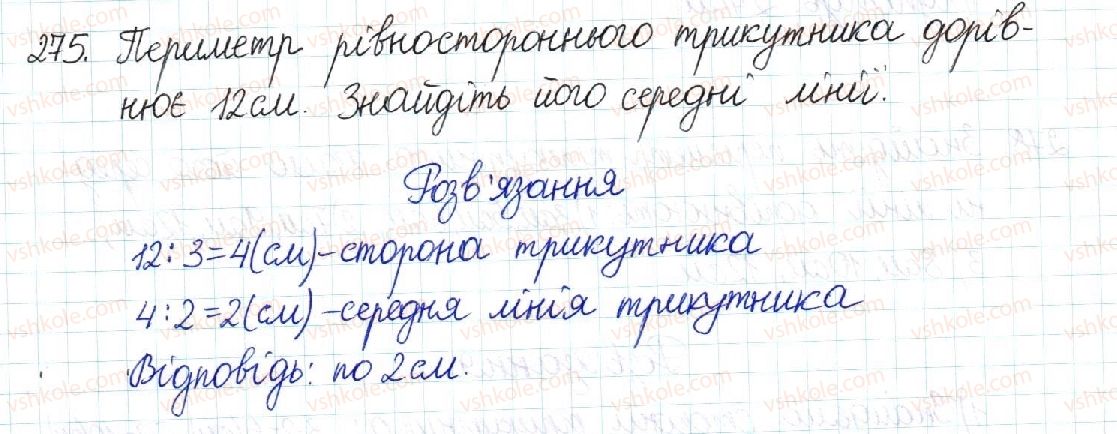 275. Периметр рівностороннього трикутника дорів-
нює 12 см. Знайдіть його середні лінії.
Розв'язання
12 : 3 = 4 (см) – сторона трикутника
4 : 2 = 2 (см) – середня лінія трикутника
Відповідь: по 2 см.